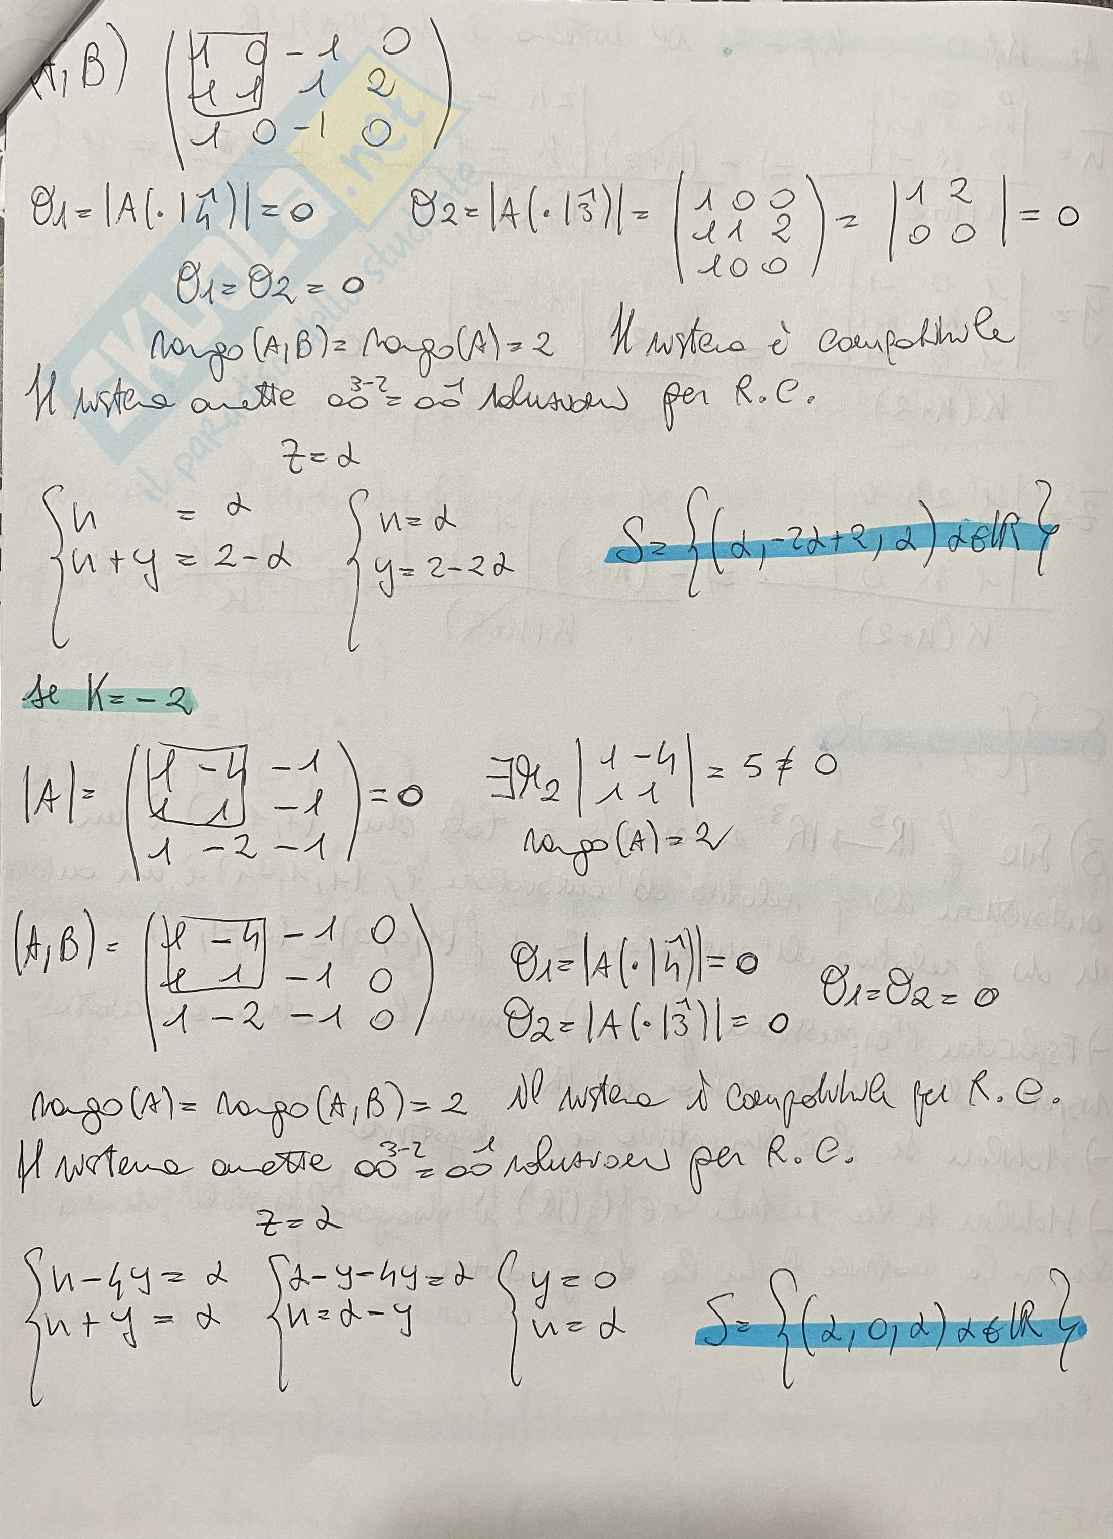 (A,B) ( 1 0 -1 0
1 1 1 2
1 0 -1 0 )
θ1 = |A(·|4̂)| = 0   θ2 = |A(·|3̂)| = ( 1 0 0
1 1 2
1 0 0 ) = | 1 2
0 0 | = 0
θ1 = θ2 = 0
rango(A,B) = rango(A) = 2   Il sistema è compatibile
Il sistema ammette ∞³⁻² = ∞¹ soluzioni per R.C.
z = α
{ x = α
x + y = 2 - α
{ x = α
y = 2 - 2α
S = {(α, -2α+2, α) α∈ℝ}
se K = -2
|A| = ( 1 -4 -1
1 1 -1
1 -2 -1 ) = 0
∃ 𝓜2 | 1 -4
1 1 | = 5 ≠ 0
rango(A) = 2
(A,B) = ( 1 -4 -1 0
1 1 -1 0
1 -2 -1 0 )
θ1 = |A(·|4̂)| = 0
θ2 = |A(·|3̂)| = 0
θ1 = θ2 = 0
rango(A) = rango(A,B) = 2   il sistema è compatibile per R.C.
Il sistema ammette ∞³⁻² = ∞¹ soluzioni per R.C.
z = α
{ x - 4y = α
x + y = α
{ α - y - 4y = α
x = α - y
{ y = 0
x = α
S = {(α, 0, α) α∈ℝ}
SKUOLA.net
il paradiso dello studente